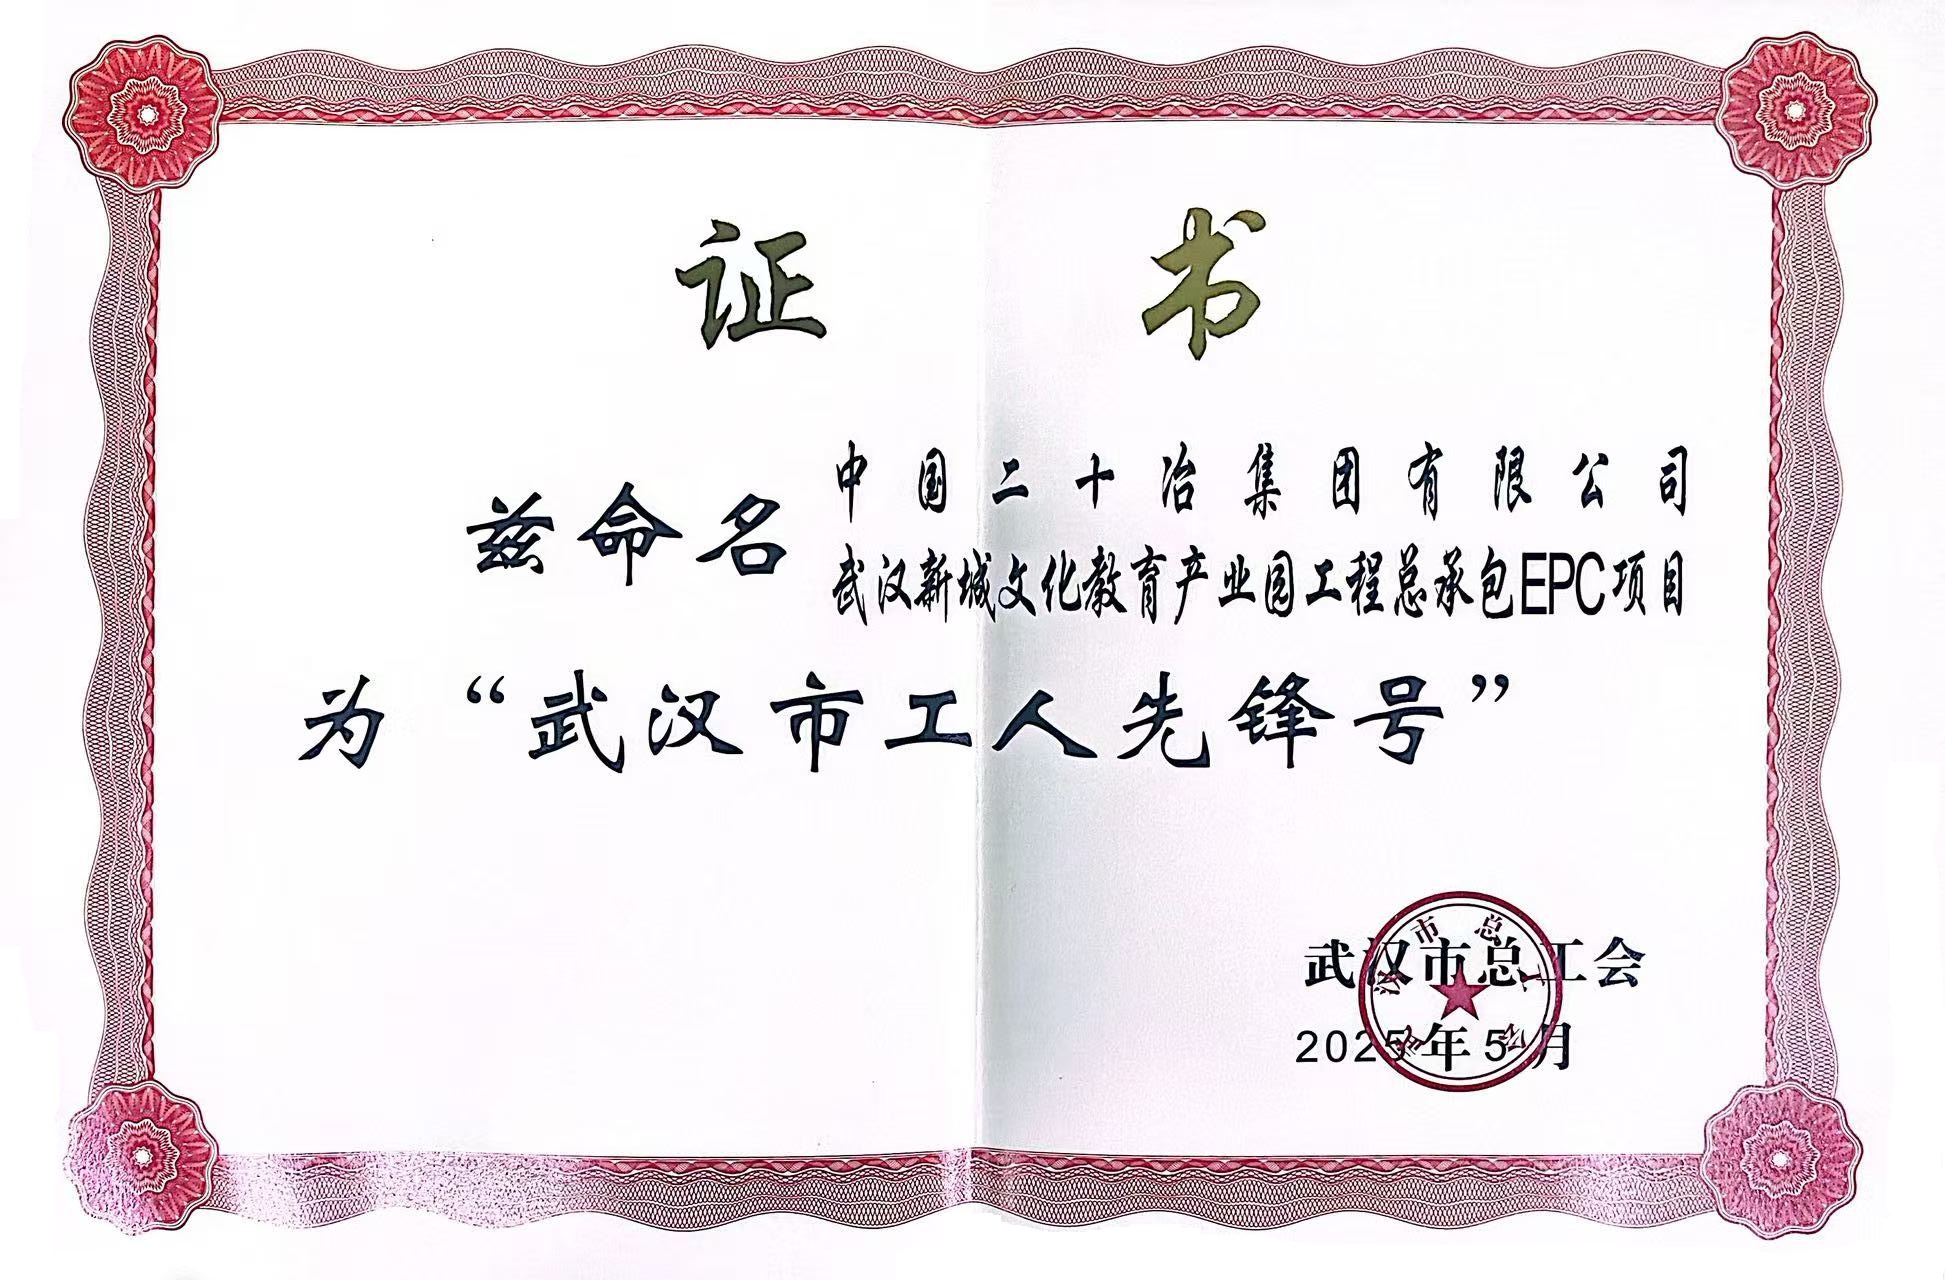 证 书
兹命名
中国二十冶集团有限公司
武汉新城文化教育产业园工程总承包EPC项目
为“武汉市工人先锋号”
武汉市总工会
2025年5月
武汉市总工会